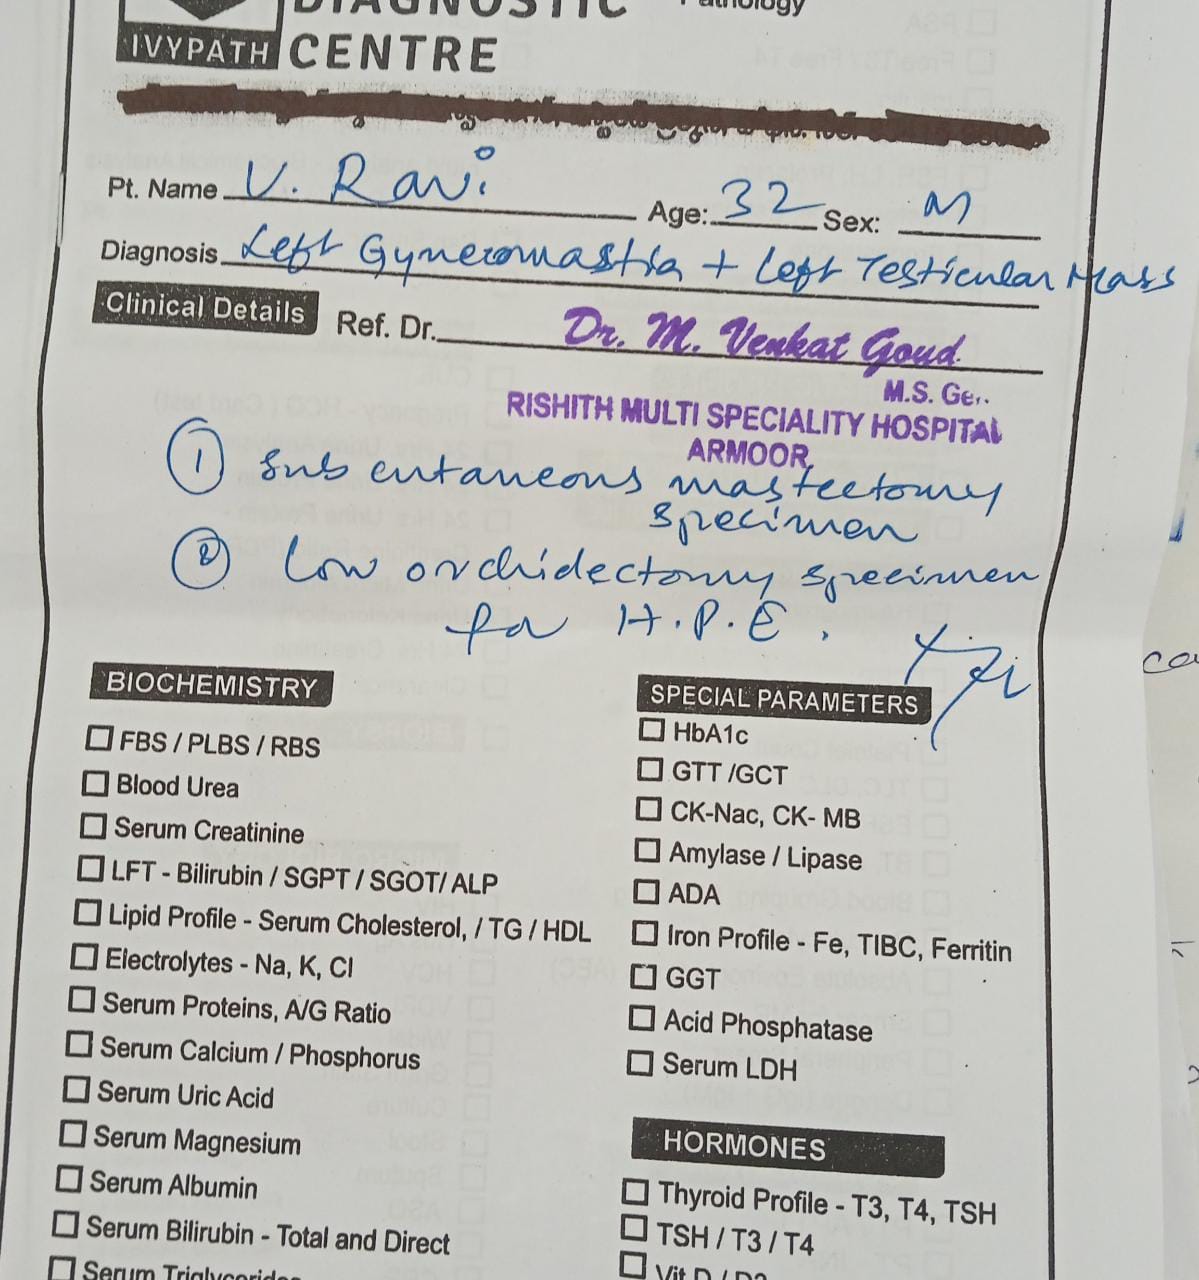 DIAGNOSTIC
Pathology
IVYPATH CENTRE
Pt. Name V. Ravi Age: 32 Sex: M
Diagnosis Left Gynecomastia + Left Testicular Mass
Clinical Details Ref. Dr. Dr. M. Venkat Goud
M.S. Ge..
RISHITH MULTI SPECIALITY HOSPITAL
ARMOOR
① Sub cutaneous mastectomy
specimen
② Low orchidectomy specimen
for H.P.E.
BIOCHEMISTRY
FBS / PLBS / RBS
Blood Urea
Serum Creatinine
LFT - Bilirubin / SGPT / SGOT/ ALP
Lipid Profile - Serum Cholesterol, / TG / HDL
Electrolytes - Na, K, Cl
Serum Proteins, A/G Ratio
Serum Calcium / Phosphorus
Serum Uric Acid
Serum Magnesium
Serum Albumin
Serum Bilirubin - Total and Direct
Serum Triglycerides
SPECIAL PARAMETERS
HbA1c
GTT /GCT
CK-Nac, CK- MB
Amylase / Lipase
ADA
Iron Profile - Fe, TIBC, Ferritin
GGT
Acid Phosphatase
Serum LDH
HORMONES
Thyroid Profile - T3, T4, TSH
TSH / T3 / T4
Vit D / D3